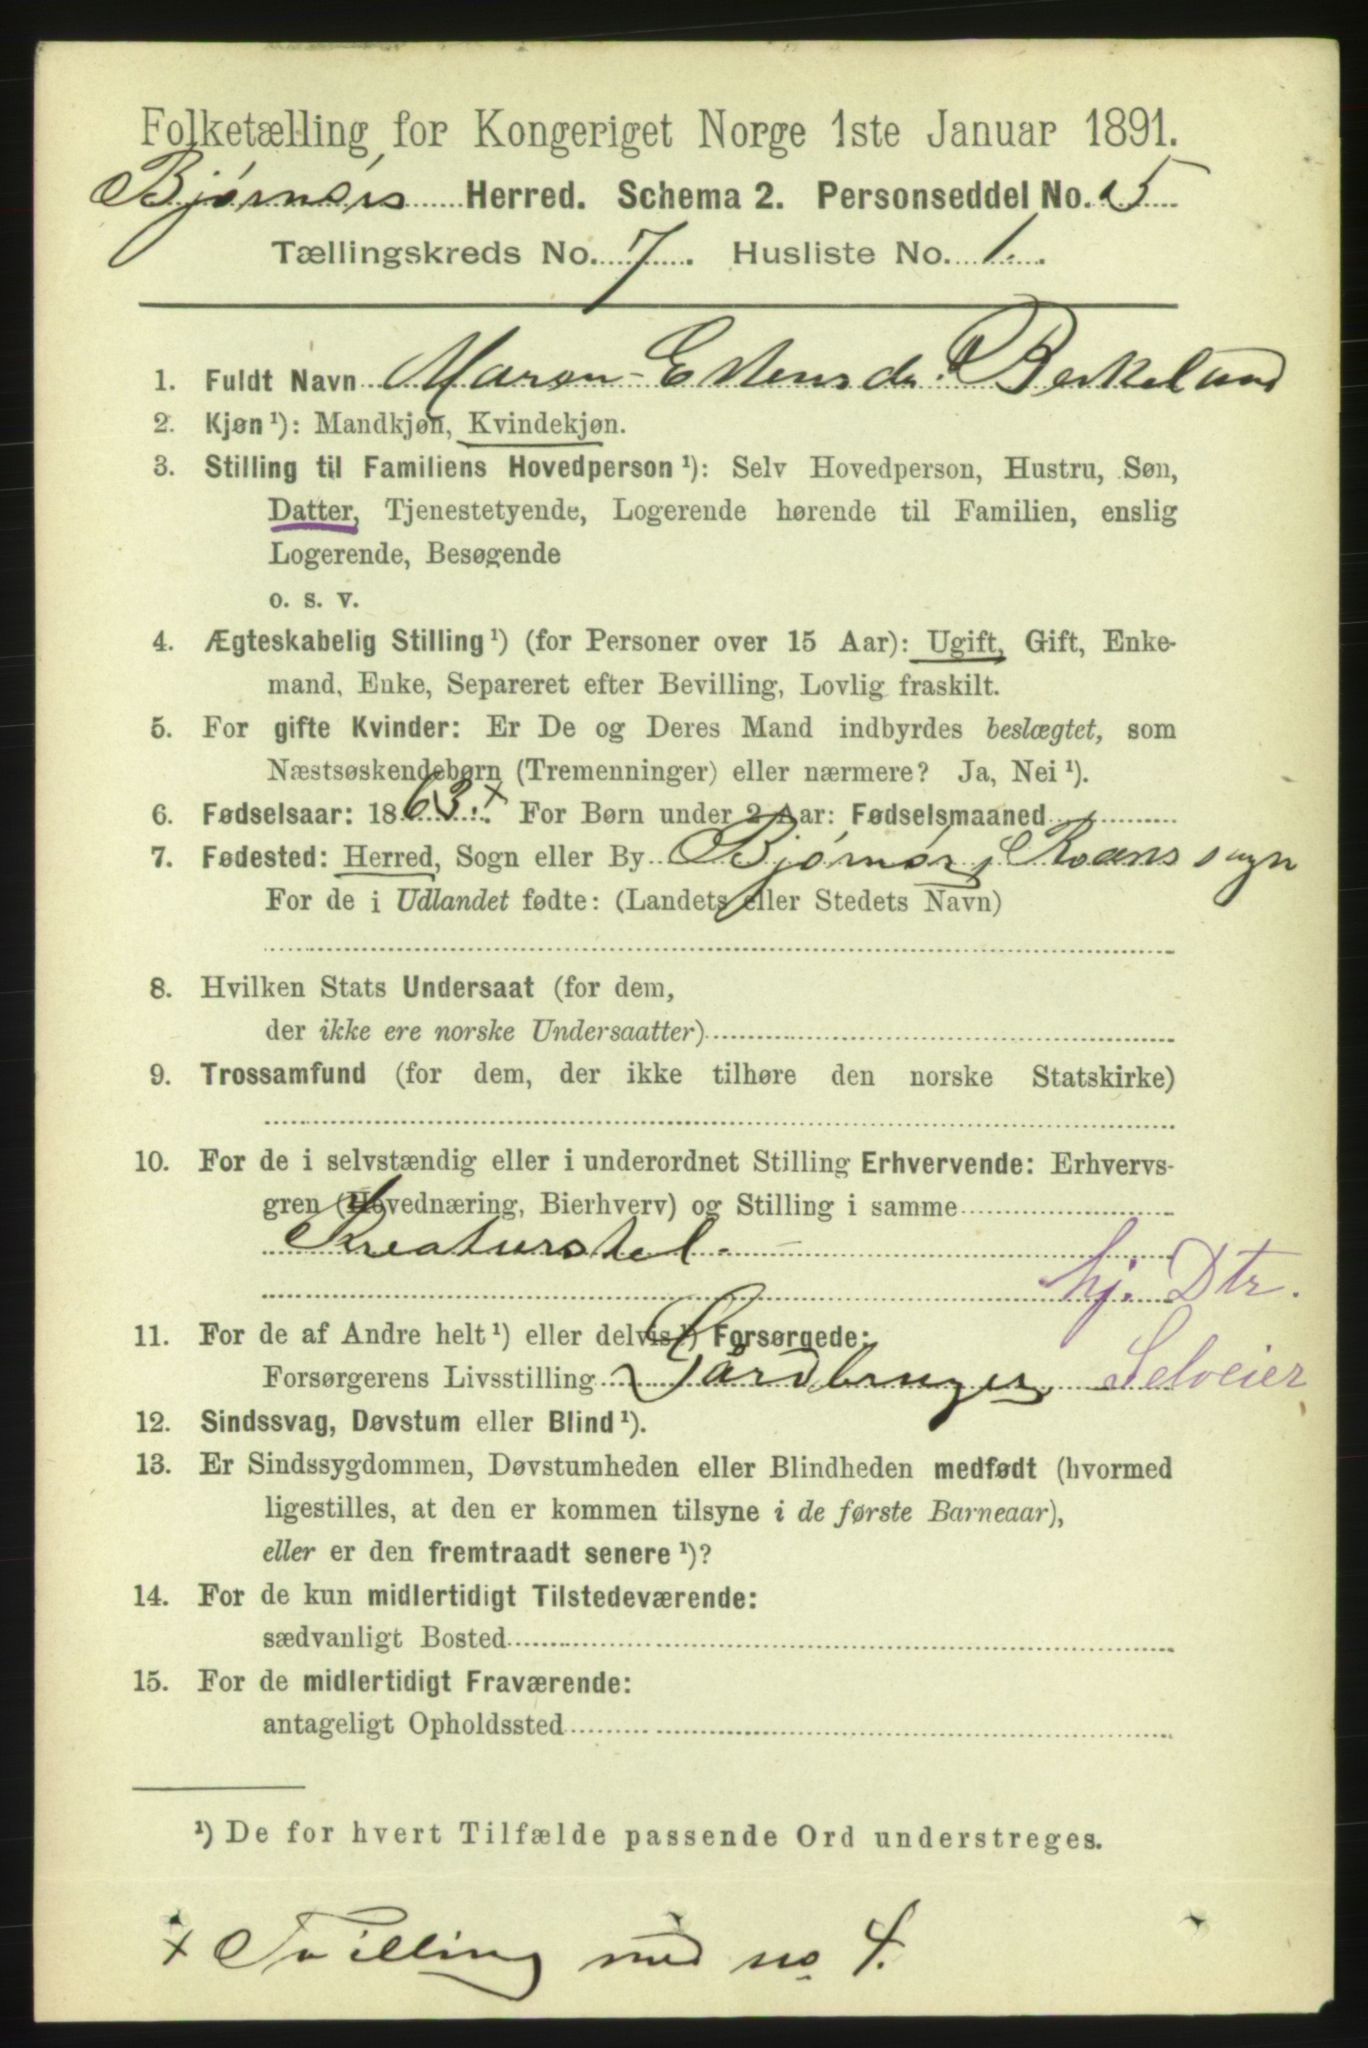 Folketælling for Kongeriget Norge 1ste Januar 1891.
Bjørnørs Herred. Schema 2. Personseddel No. 5
Tællingskreds No. 7. Husliste No. 1.
1. Fuldt Navn Maren Estensdr. Berkeland
2. Kjøn ¹): Mandkjøn, Kvindekjøn.
3. Stilling til Familiens Hovedperson ¹): Selv Hovedperson, Hustru, Søn,
Datter, Tjenestetyende, Logerende hørende til Familien, enslig
Logerende, Besøgende
o. s. v.
4. Ægteskabelig Stilling ¹) (for Personer over 15 Aar): Ugift, Gift, Enke-
mand, Enke, Separeret efter Bevilling, Lovlig fraskilt.
5. For gifte Kvinder: Er De og Deres Mand indbyrdes beslægtet, som
Næstsøskendebørn (Tremenninger) eller nærmere? Ja, Nei ¹).
6. Fødselsaar: 1863. x For Børn under 2 Aar: Fødselsmaaned
7. Fødested: Herred, Sogn eller By Bjørnør, Roans sogn
For de i Udlandet fødte: (Landets eller Stedets Navn)
8. Hvilken Stats Undersaat (for dem,
der ikke ere norske Undersaatter)
9. Trossamfund (for dem, der ikke tilhøre den norske Statskirke)
10. For de i selvstændig eller i underordnet Stilling Erhvervende: Erhvervs-
gren (Hovednæring, Bierhverv) og Stilling i samme
Kreaturstel. –
hj. Dtr.
11. For de af Andre helt ¹) eller delvis ¹) Forsørgede:
Forsørgerens Livsstilling Gårdbruger, Selveier
12. Sindssvag, Døvstum eller Blind ¹).
13. Er Sindssygdommen, Døvstumheden eller Blindheden medfødt (hvormed
ligestilles, at den er kommen tilsyne i de første Barneaar),
eller er den fremtraadt senere ¹)?
14. For de kun midlertidigt Tilstedeværende:
sædvanligt Bosted
15. For de midlertidigt Fraværende:
antageligt Opholdssted
¹) De for hvert Tilfælde passende Ord understreges.
x Tvilling med no 4.